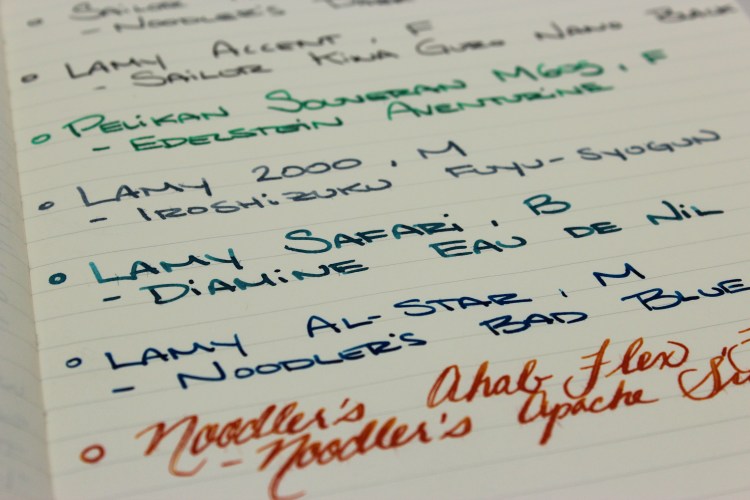 SAILOR
- NOODLER'S
LAMY ACCENT, F
- SAILOR KIWA GURO NANO BLACK
PELIKAN SOUVERAN M605, F
- EDELSTEIN AVENTURINE
LAMY 2000, M
- IROSHIZUKU FUYU-SYOGUN
LAMY SAFARI, B
- DIAMINE EAU DE NIL
LAMY AL-STAR, M
- NOODLER'S BAD BLUE
Noodler's Ahab Flex,
- Noodler's Apache